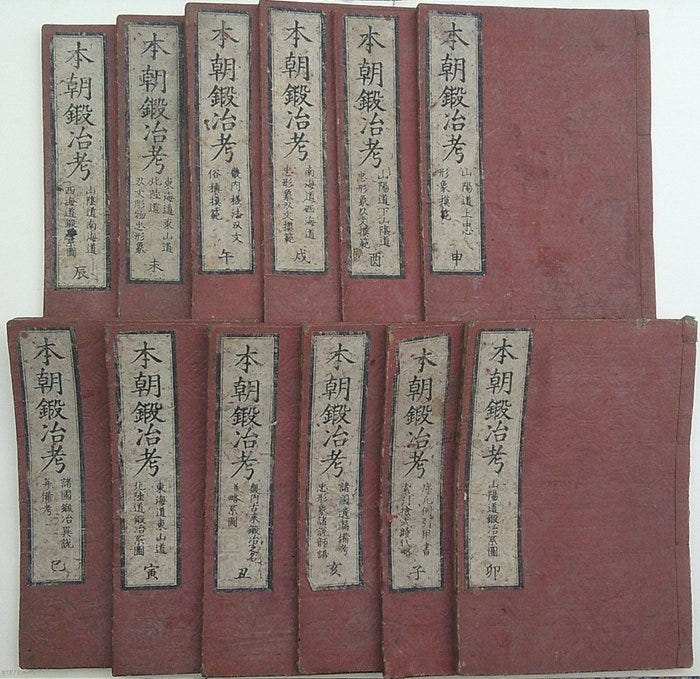 本朝鍛冶考
山陰道南海道
西海道鍛冶系圖
辰
本朝鍛冶考
東海道東山道
北陸道
刄文彫物忠形象
未
本朝鍛冶考
畿内
刄文
模範
午
本朝鍛冶考
南海道西海道
忠形象刄文模範
戌
本朝鍛冶考
山陽道下山陰道
忠形象刄文模範
酉
本朝鍛冶考
山陽道上忠
形象模範
申
本朝鍛冶考
諸國鍛冶異説
并備考
巳
本朝鍛冶考
東海道東山道
北陸道鍛冶系圖
寅
本朝鍛冶考
畿内古来鍛冶交名
略系圖
丑
本朝鍛冶考
諸國遺漏備考
忠形象諸説
亥
本朝鍛冶考
序凡例引用書
子
本朝鍛冶考
山陽道鍛冶系圖
卯